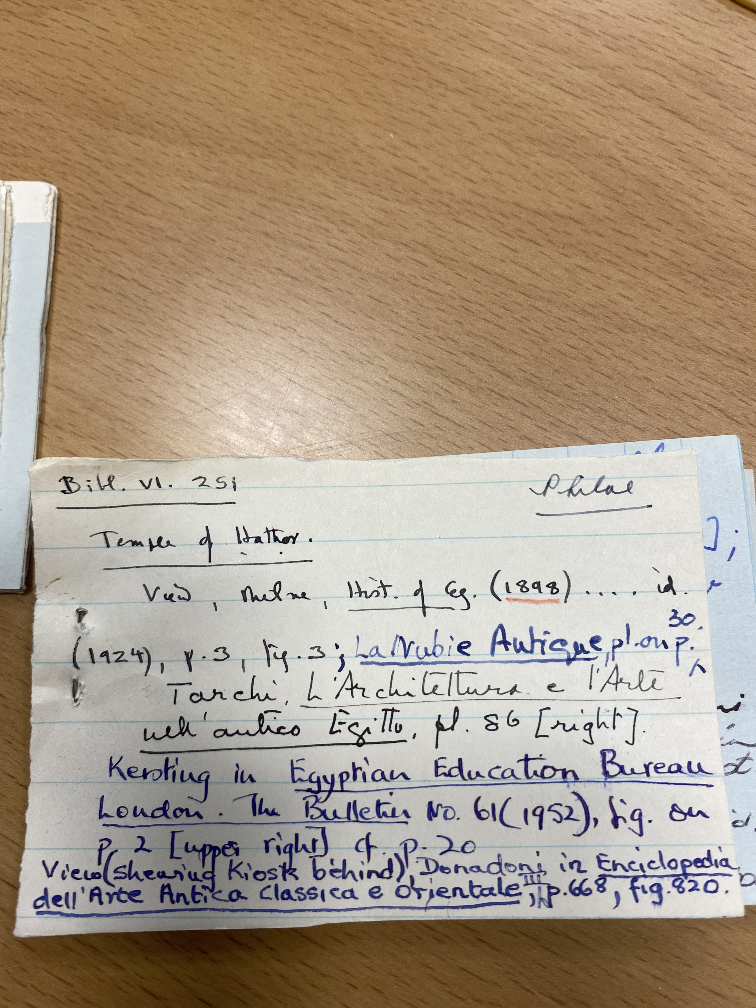 Bibl. VI. 251
Philae
Temple of Hathor.
View, Milne, Hist. of Eg. (1898) .... id.
(1924), p.3, fig. 3; La Nubie Antique, pl. on p. 30.
Tarchi, L'Architettura e l'Arte
nell'antico Egitto, pl. 86 [right].
Keroting in Egyptian Education Bureau
London. The Bulletin No. 61 (1952), fig. on
p. 2 [upper right] cf. p. 20
View (shewing Kiosk behind), Donadoni in Enciclopedia
dell'Arte Antica Classica e Orientale, III, p. 668, fig. 820.